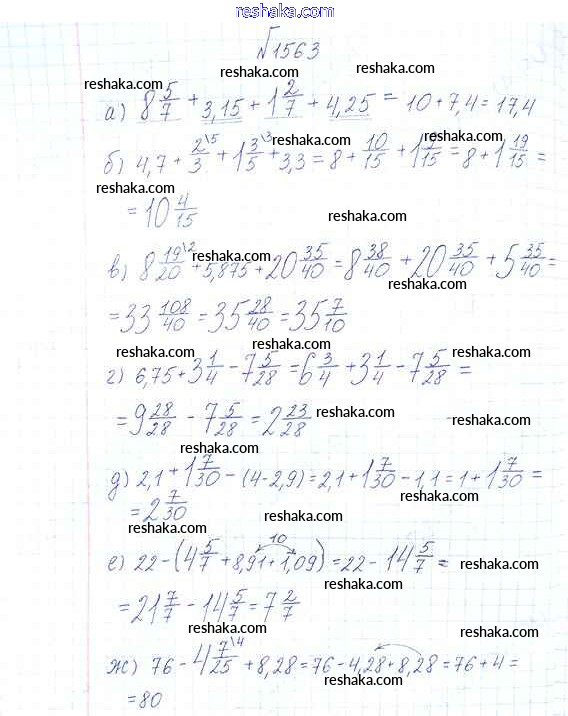 reshaka.com
№1563
reshaka.com
reshaka.com
reshaka.com
а) 8 5/7 + 3,15 + 1 2/7 + 4,25 = 10 + 7,4 = 17,4
reshaka.com reshaka.com
reshaka.com
б) 4,7 + 2/3 \5 + 1 3/5 \3 + 3,3 = 8 + 10/15 + 1 9/15 = 8 + 1 19/15 =
reshaka.com
= 10 4/15
reshaka.com
reshaka.com
в) 8 19/20 \2 + 5,875 + 20 35/40 = 8 38/40 + 20 35/40 + 5 35/40 =
reshaka.com
= 33 108/40 = 35 28/40 = 35 7/10
reshaka.com reshaka.com
г) 6,75 + 3 1/4 - 7 5/28 = 6 3/4 + 3 1/4 - 7 5/28 =
= 9 28/28 - 7 5/28 = 2 23/28
reshaka.com
reshaka.com
reshaka.com
reshaka.com
д) 2,1 + 1 7/30 - (4-2,9) = 2,1 + 1 7/30 - 1,1 = 1 + 1 7/30 =
reshaka.com
= 2 7/30
reshaka.com
reshaka.com
10
е) 22 - (4 5/7 + 8,91 + 1,09) = 22 - 14 5/7 =
reshaka.com
reshaka.com
= 21 7/7 - 14 5/7 = 7 2/7
reshaka.com
reshaka.com
ж) 76 - 4 7/25 \4 + 8,28 = 76 - 4,28 + 8,28 = 76 + 4 =
reshaka.com
= 80